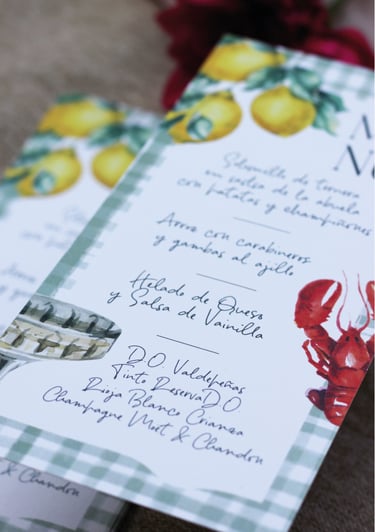 M
NO
Solomillo de ternera
en salsa de la abuela
con patatas y champiñones
Arroz con carabineros
y gambas al ajillo
Helado de Queso
y Salsa de Vainilla
D.O. Valdepeñas
Tinto Reserva D.O
Rioja Blanco Crianza
Champagne Moët & Chandon
& Chandon